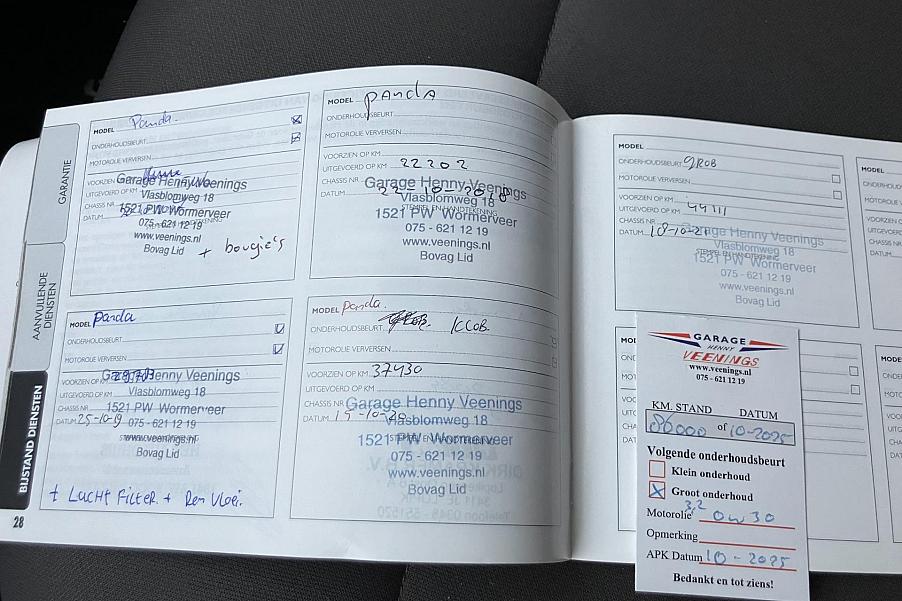 GARANTIE
AANVULLENDE DIENSTEN
BIJSTAND DIENSTEN
28
MODEL Panda.
ONDERHOUDSBEURT
MOTOROLIE VERVERSEN
VOORZIEN OP KM
UITGEVOERD OP KM
CHASSIS NR
DATUM
Garage Henny Veenings
Vlasblomweg 18
1521 PW Wormerveer
075 - 621 12 19
www.veenings.nl
Bovag Lid
+ bougie's
MODEL panda
ONDERHOUDSBEURT
MOTOROLIE VERVERSEN
VOORZIEN OP KM
UITGEVOERD OP KM 22202
CHASSIS NR
DATUM 22-10-2018
Garage Henny Veenings
Vlasblomweg 18
STEMPEL EN HANDTEKENING
1521 PW Wormerveer
075 - 621 12 19
www.veenings.nl
Bovag Lid
MODEL panda
ONDERHOUDSBEURT
MOTOROLIE VERVERSEN
VOORZIEN OP KM
UITGEVOERD OP KM
CHASSIS NR
DATUM 25-10-19
Garage Henny Veenings
Vlasblomweg 18
1521 PW Wormerveer
075 - 621 12 19
www.veenings.nl
Bovag Lid
+ Lucht Filter + Rem Vloei.
MODEL panda.
ONDERHOUDSBEURT KLOB
MOTOROLIE VERVERSEN
VOORZIEN OP KM 37430
UITGEVOERD OP KM
CHASSIS NR
DATUM 15-10-20
Garage Henny Veenings
Vlasblomweg 18
STEMPEL EN HANDTEKENING
1521 PW Wormerveer
075 - 621 12 19
www.veenings.nl
Bovag Lid
MODEL
ONDERHOUDSBEURT GROB
MOTOROLIE VERVERSEN
VOORZIEN OP KM
UITGEVOERD OP KM 44111
CHASSIS NR
DATUM 18-10-21
Garage Henny Veenings
Vlasblomweg 18
STEMPEL EN HANDTEKENING
1521 PW Wormerveer
075 - 621 12 19
www.veenings.nl
Bovag Lid
MODEL
ONDERHOUD
MOTOROLIE
VOORZIEN O
UITGEVOERD
CHASSIS N
DATUM
GARAGE
HENNY
VEENINGS
www.veenings.nl
075 - 621 12 19
KM. STAND DATUM
86000 of 10-2025
Volgende onderhoudsbeurt
Klein onderhoud
Groot onderhoud
3,2
Motorolie 0W30
Opmerking
APK Datum 10-2025
Bedankt en tot ziens!